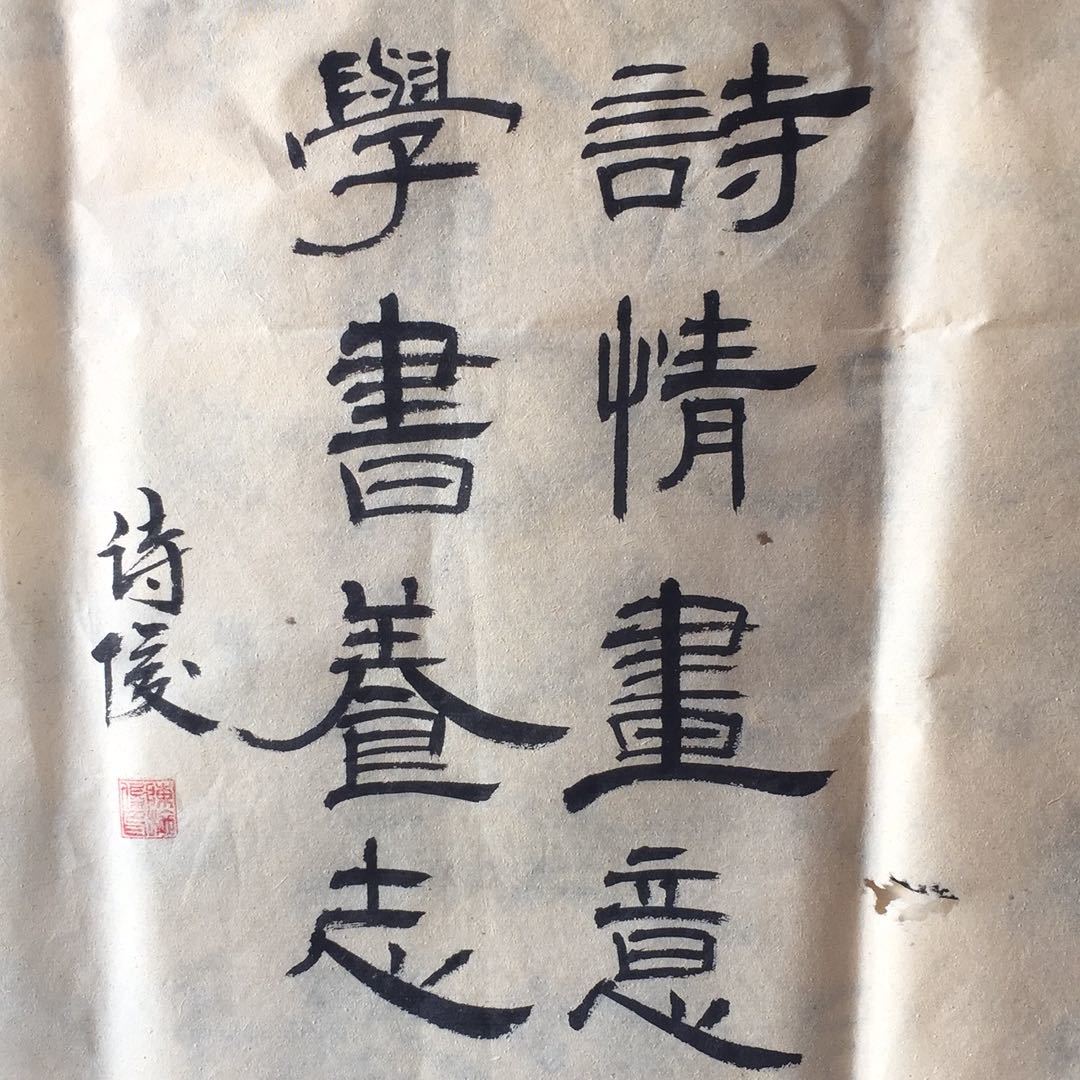 詩情畫意
學書養志
诗俊